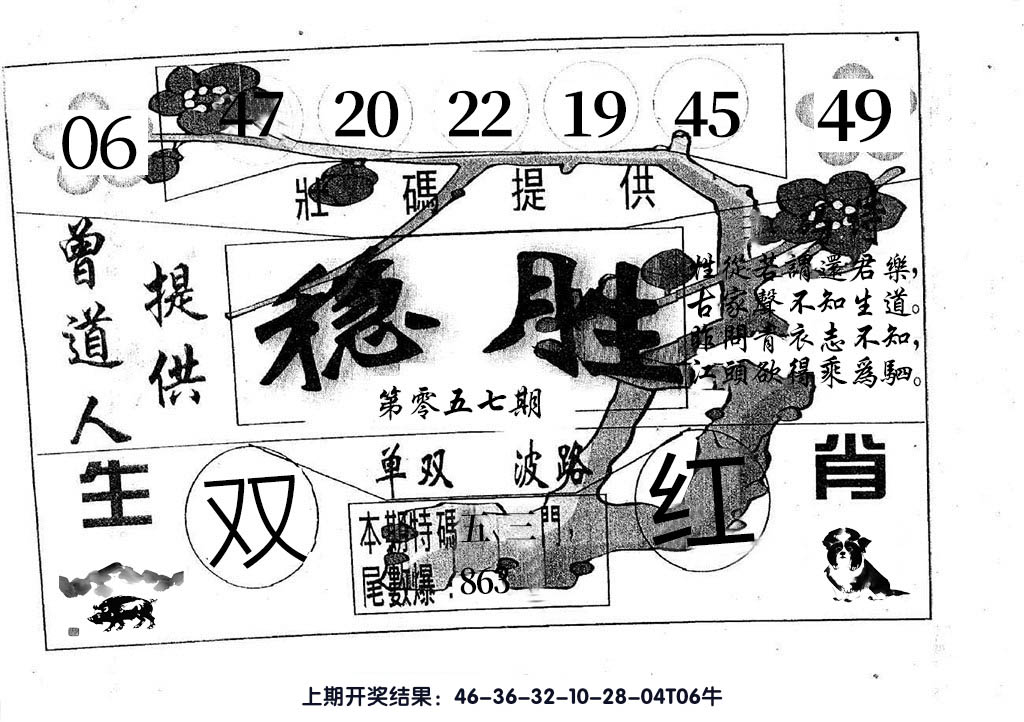 06 47 20 22 19 45 49
壯碼提供
特
曾道人
提供
稳胜
第零五七期
性從苦謂還君樂，
古家聲不知生道。
昨問青衣志不知，
江頭欲得乘為駟。
单双 波路
生肖
双
红
本期特碼五、三門，
尾數爆：863
上期开奖结果：46-36-32-10-28-04T06牛